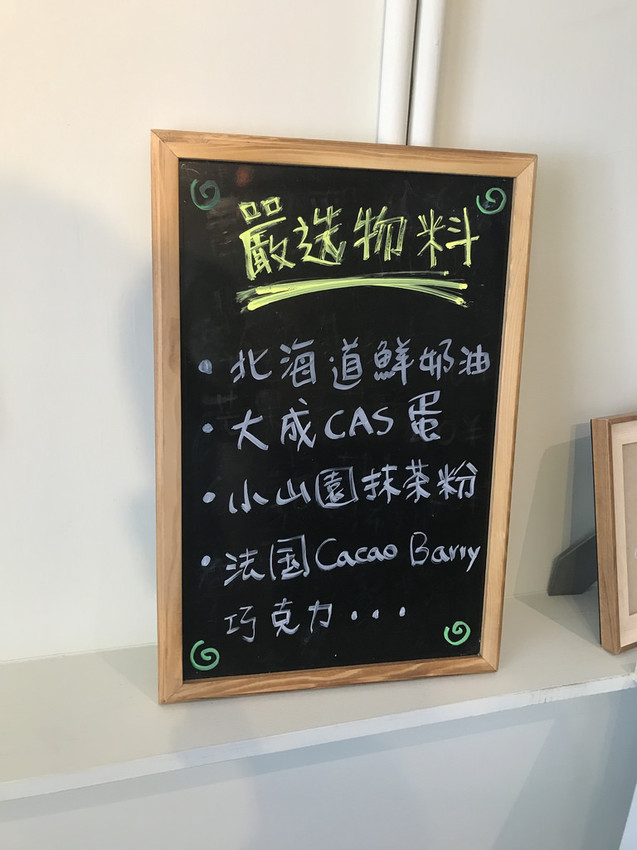 嚴选物料
• 北海道鮮奶油
• 大成CAS蛋
• 小山園抹茶粉
• 法国Cacao Barry
巧克力...